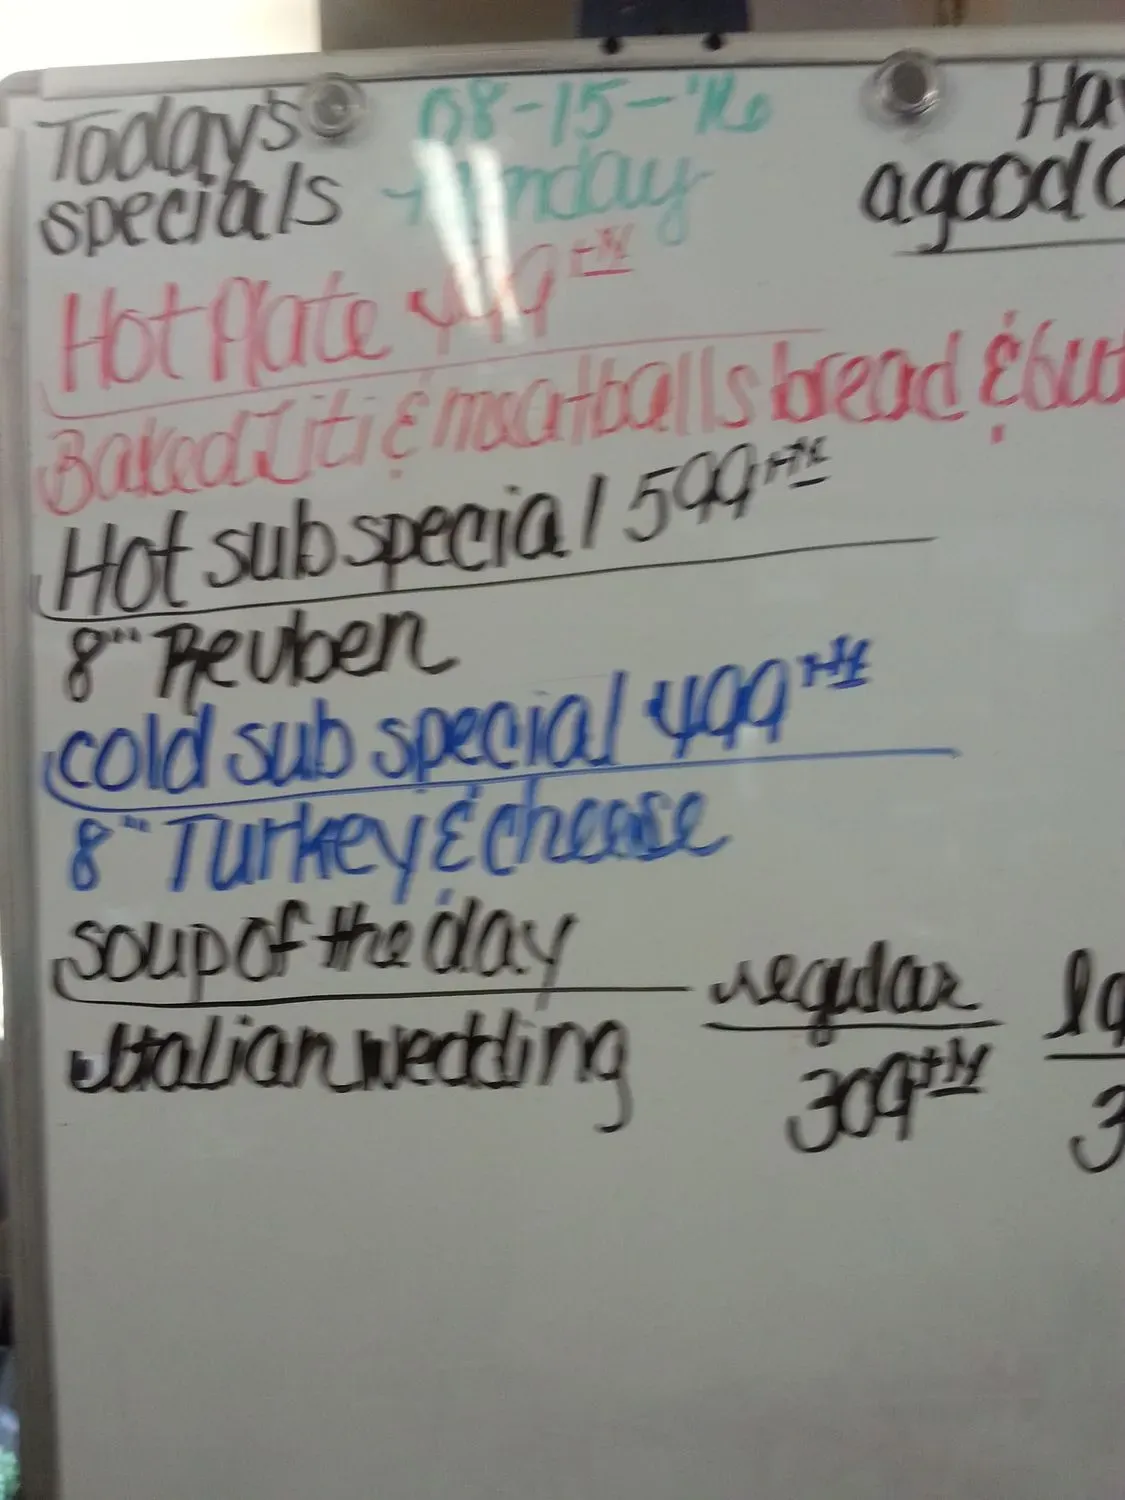 Today's specials
08-15-'16
Monday
Ha
a good
Hot Plate 499 +tx
Baked Ziti & meatballs bread & but
Hot sub special 599 +tx
8" Reuben
cold sub special 499 +tx
8" Turkey & cheese
soup of the day
Italian wedding
regular
309 +tx
lg
3